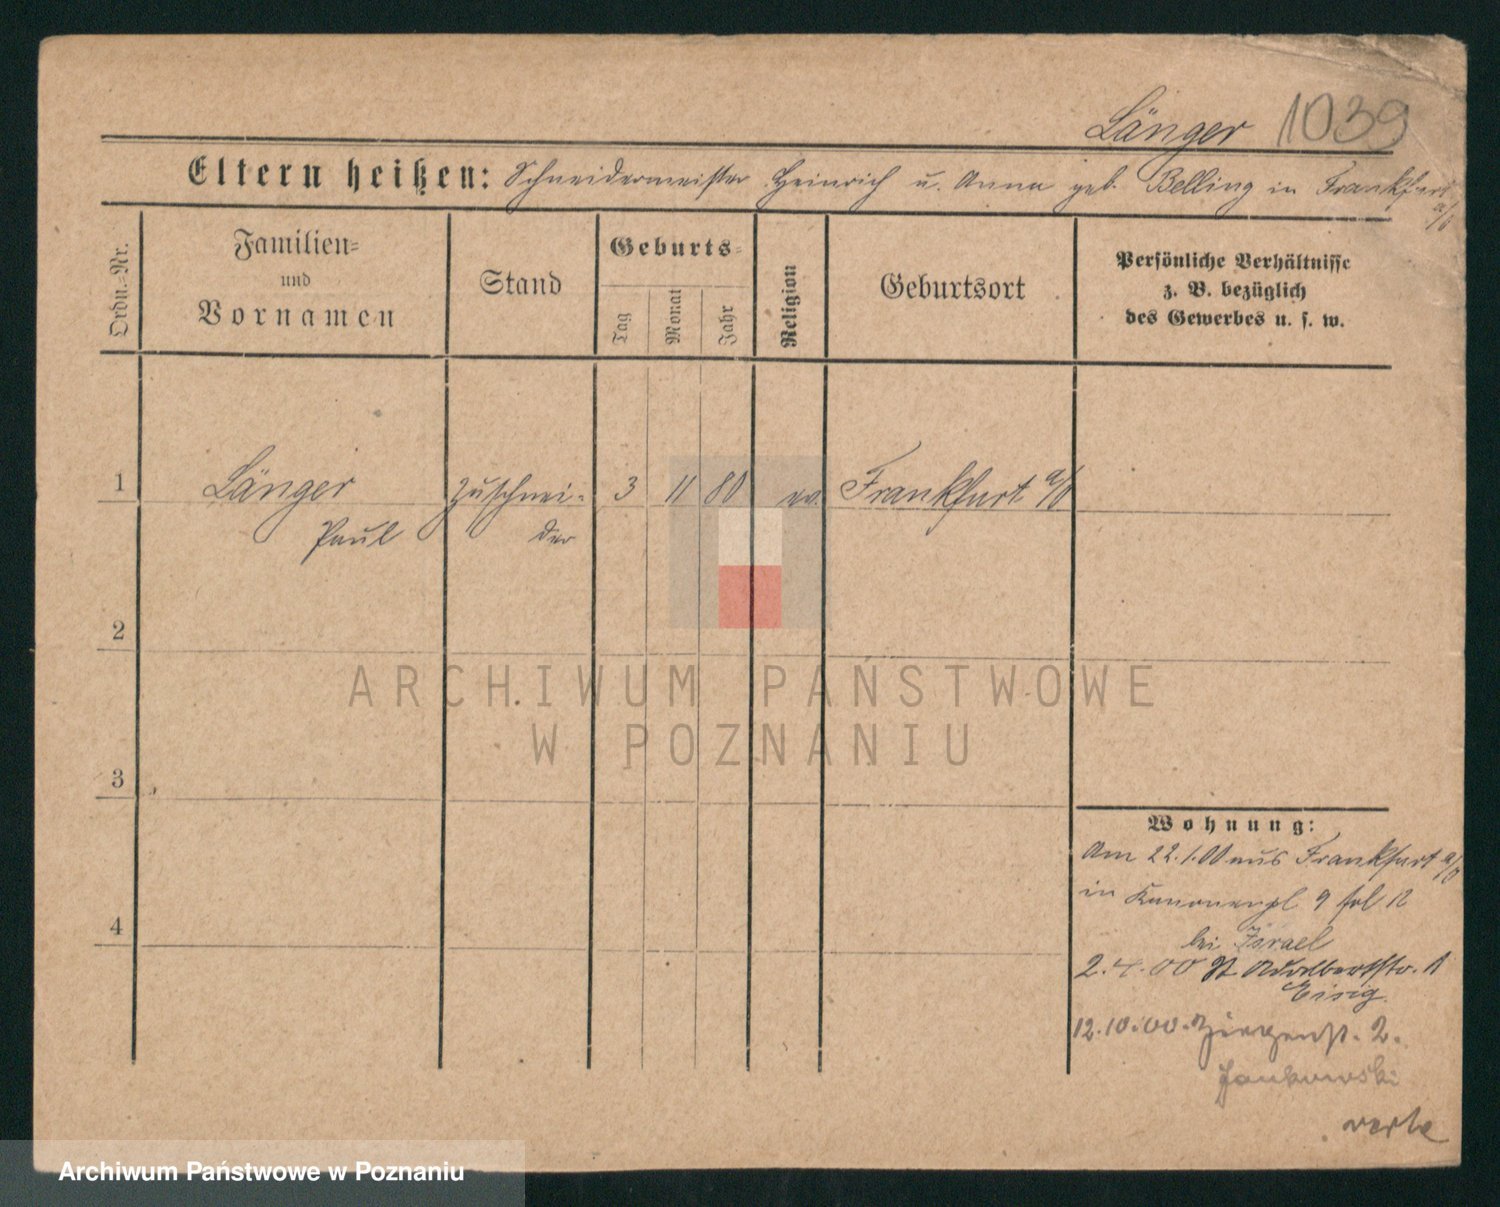 Länger 1039
Eltern heißen: Schneidermeister Heinrich u. Anna geb. Belling in Frankfurt a/O
Ordn.-Nr.
Familien-
und
Vornamen
Stand
Geburts-
Tag
Monat
Jahr
Religion
Geburtsort
Persönliche Verhältnisse
z. B. bezüglich
des Gewerbes u. s. w.
1 Länger Zuschnei- 3 11 80 ev. Frankfurt a/O
Paul der
2
3
4
Wohnung:
Am 22.1.00 aus Frankfurt a/O
in Kanonenpl 9
bei Israel
2.4.00 St Adalbertstr. 1
Eisig
12.10.00. 2.
Jankowski
ARCHIWUM PAŃSTWOWE
W POZNANIU
Archiwum Państwowe w Poznaniu